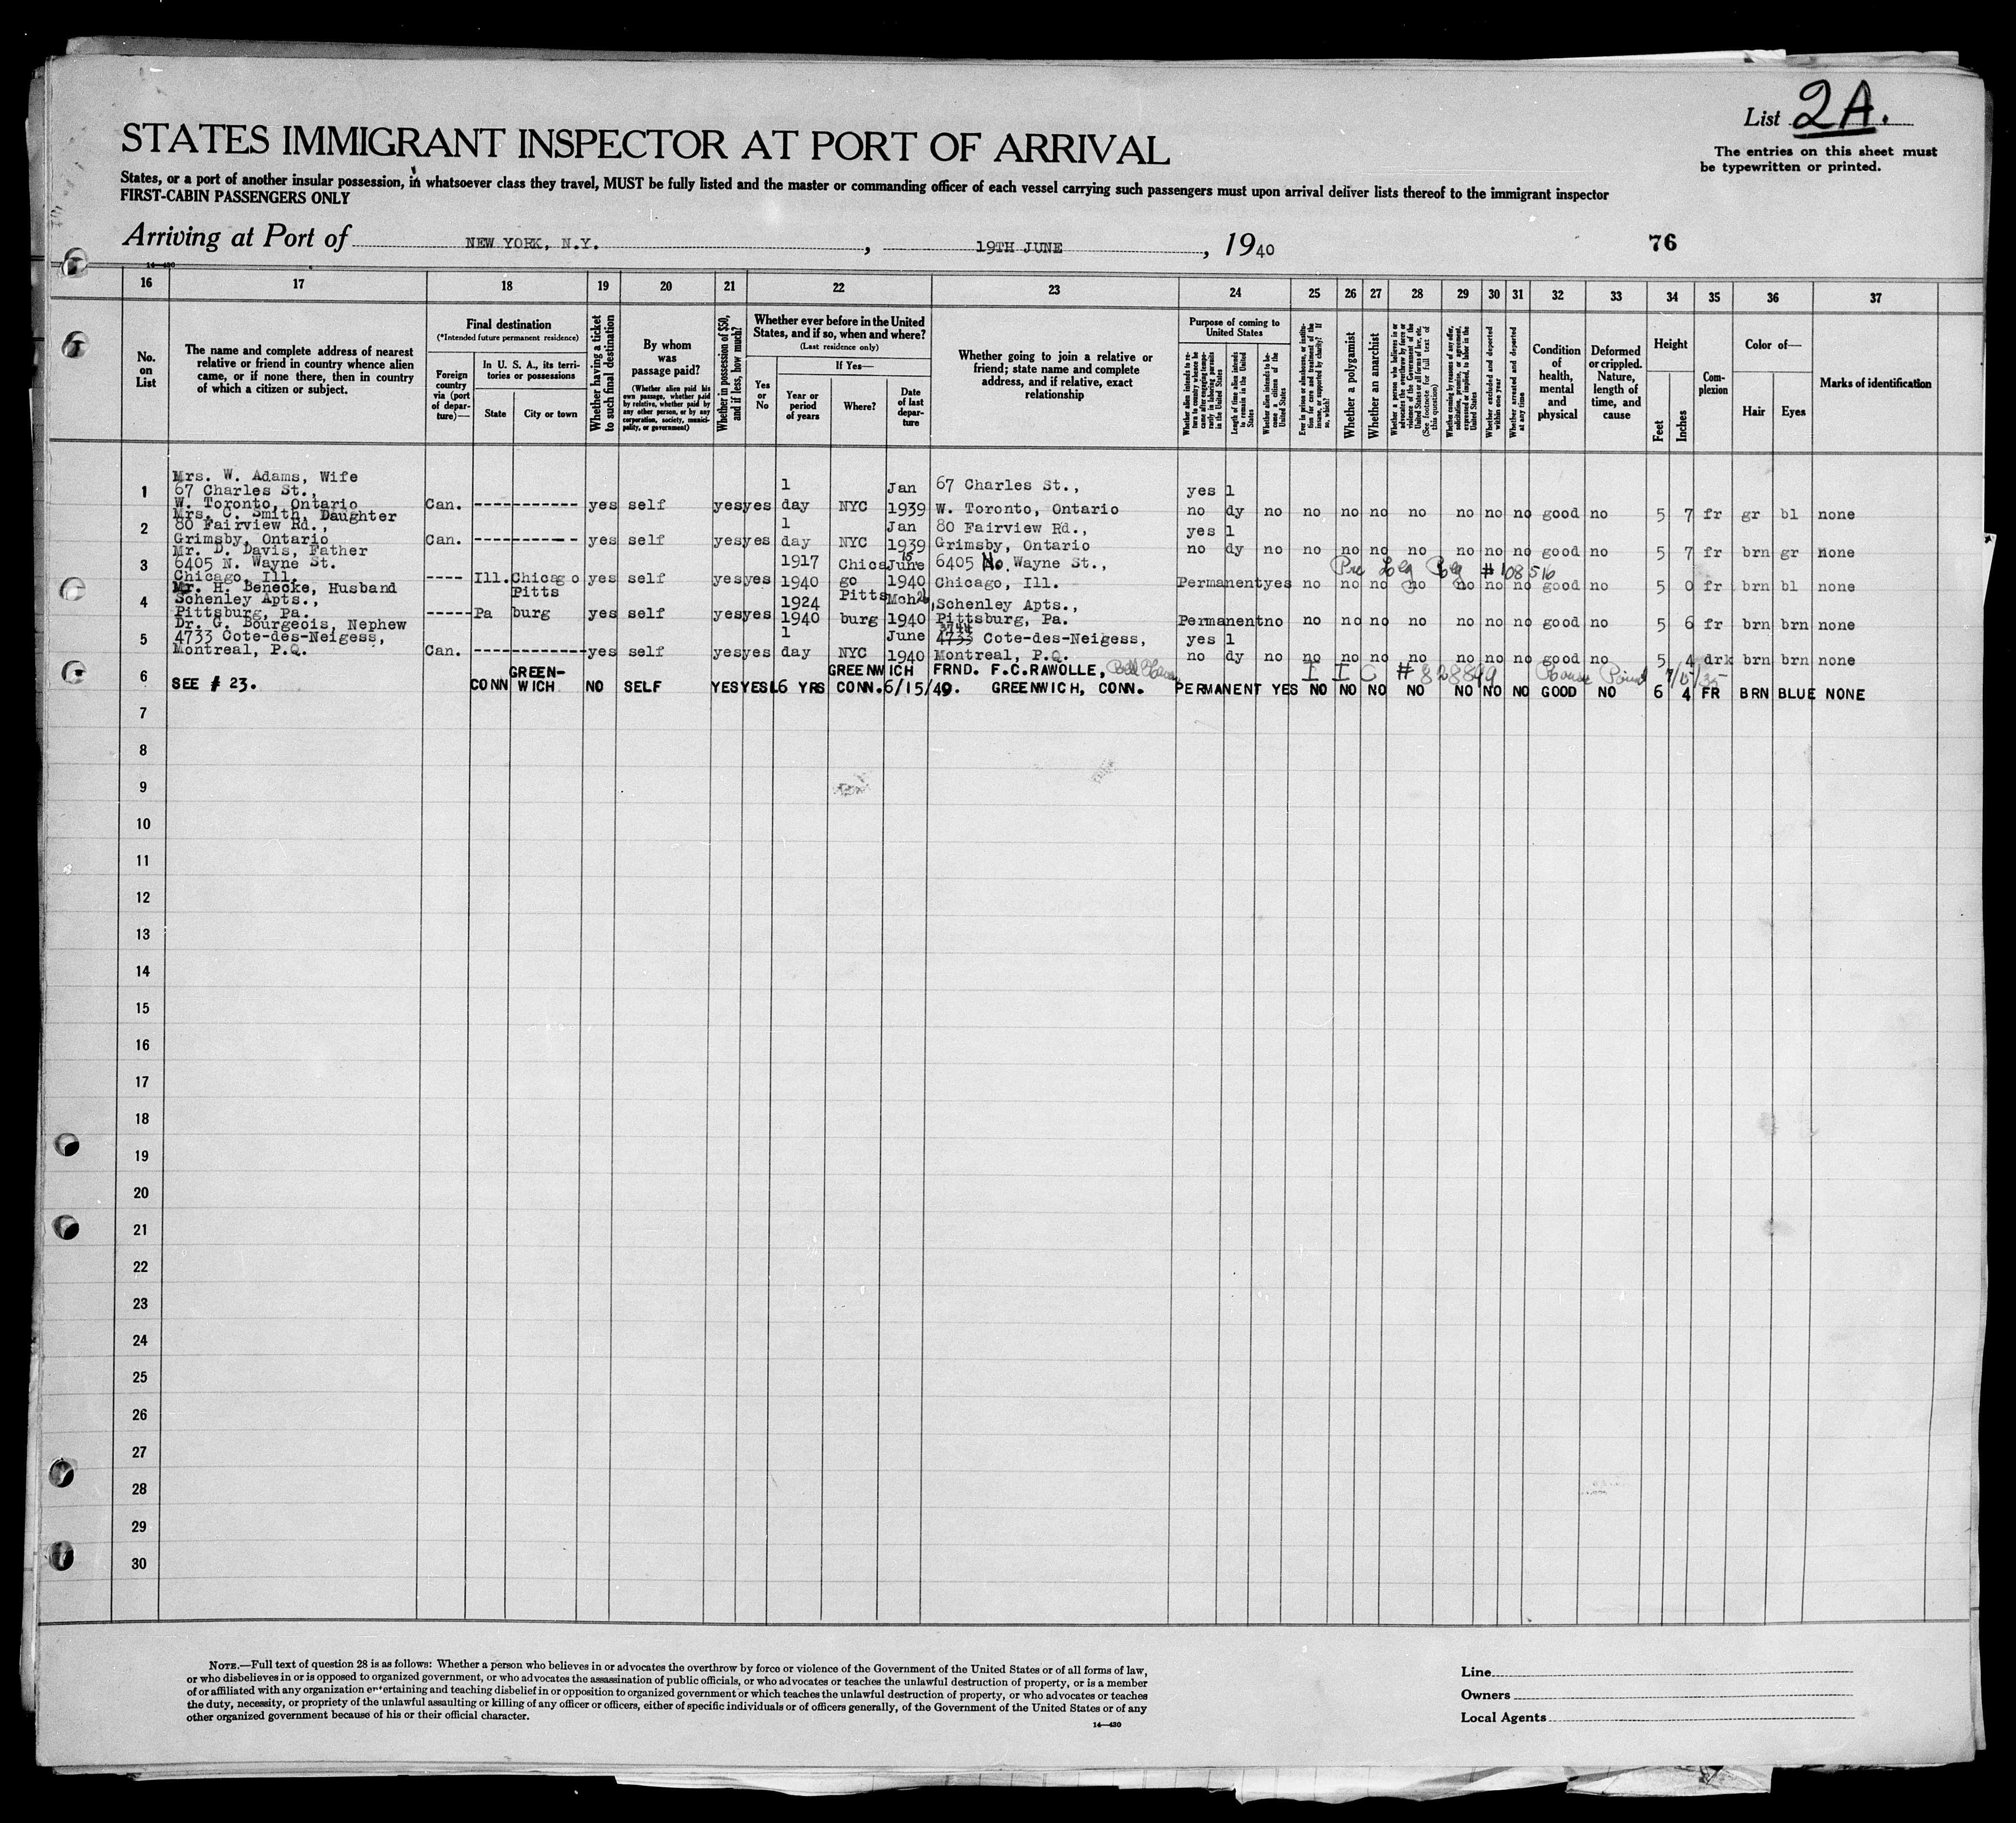 List 2A.
The entries on this sheet must
be typewritten or printed.
STATES IMMIGRANT INSPECTOR AT PORT OF ARRIVAL
States, or a port of another insular possession, in whatsoever class they travel, MUST be fully listed and the master or commanding officer of each vessel carrying such passengers must upon arrival deliver lists thereof to the immigrant inspector
FIRST-CABIN PASSENGERS ONLY
Arriving at Port of NEW YORK, N.Y., 19TH JUNE, 1940
76
14—430
16 17 18 19 20 21 22 23 24 25 26 27 28 29 30 31 32 33 34 35 36 37
No. on List
The name and complete address of nearest
relative or friend in country whence alien
came, or if none there, then in country
of which a citizen or subject.
Final destination
(*Intended future permanent residence)
Foreign country via (port of departure)—
In U. S. A., its territories or possessions
State
City or town
Whether having a ticket to such final destination
By whom was passage paid?
(Whether alien paid his own passage, whether paid by relative, whether paid by any other person, or by any corporation, society, municipality, or government)
Whether in possession of $50, and if less, how much?
Whether ever before in the United
States, and if so, when and where?
(Last residence only)
Yes or No
If Yes—
Year or period of years
Where?
Date of last departure
Whether going to join a relative or
friend; state name and complete
address, and if relative, exact
relationship
Purpose of coming to United States
Whether alien intends to return to country whence he came after engaging temporarily in laboring pursuits in the United States
Length of time alien intends to remain in the United States
Whether alien intends to become a citizen of the United States
Ever in prison or almshouse, or institution for care and treatment of the insane, or supported by charity? If so, which?
Whether a polygamist
Whether an anarchist
Whether a person who believes in or advocates the overthrow by force or violence of the Government of the United States or all forms of law, etc. (See footnote for full text of this question)
Whether coming by reason of any offer, solicitation, promise, or agreement, expressed or implied, to labor in the United States
Whether excluded and deported within one year
Whether arrested and deported at any time
Condition of health, mental and physical
Deformed or crippled. Nature, length of time, and cause
Height
Feet
Inches
Complexion
Color of—
Hair
Eyes
Marks of identification
1 Mrs. W. Adams, Wife
67 Charles St.,
W. Toronto, Ontario
Can. yes self yes yes 1 day NYC Jan 1939 67 Charles St., W. Toronto, Ontario yes no 1 dy no no no no no no no no good no 5 7 fr gr bl none
2 Mrs. C. Smith, Daughter
80 Fairview Rd.,
Grimsby, Ontario
Can. yes self yes yes 1 day NYC Jan 1939 80 Fairview Rd., Grimsby, Ontario yes no 1 dy no no no no no no no no good no 5 7 fr brn gr none
3 Mr. D. Davis, Father
6405 N. Wayne St.
Chicago, Ill.
---- Ill. Chicago yes self yes yes 1917 1940 Chicago June 15 1940 6405 No. Wayne St., Chicago, Ill. Permanent yes no no no no no no no good no 5 0 fr brn bl none
#108516
4 Mr. H. Benecke, Husband
Schenley Apts.,
Pittsburg, Pa.
----- Pa Pittsburg yes self yes yes 1924 1940 Pittsburg Mch 1940 Schenley Apts., Pittsburg, Pa. Permanent no no no no no no no no good no 5 6 fr brn brn none
5 Dr. G. Bourgeois, Nephew
4733 Cote-des-Neigess,
Montreal, P.Q.
Can. yes self yes yes 1 day NYC June 1940 3744 4733 Cote-des-Neigess, Montreal, P.Q. yes no 1 dy no no no no no no no no good no 5 4 drk brn brn none
I I C #828899 Rouses Point 7/5/35
6 SEE # 23. CONN GREENWICH NO SELF YES YES 16 YRS GREENWICH CONN. 6/15/40. FRND. F.C.RAWOLLE, GREENWICH, CONN. PERMANENT YES NO NO NO NO NO NO NO GOOD NO 6 4 FR BRN BLUE NONE
7
8
9
10
11
12
13
14
15
16
17
18
19
20
21
22
23
24
25
26
27
28
29
30
NOTE.—Full text of question 28 is as follows: Whether a person who believes in or advocates the overthrow by force or violence of the Government of the United States or of all forms of law,
or who disbelieves in or is opposed to organized government, or who advocates the assassination of public officials, or who advocates or teaches the unlawful destruction of property, or is a member
of or affiliated with any organization entertaining and teaching disbelief in or opposition to organized government or which teaches the unlawful destruction of property, or who advocates or teaches
the duty, necessity, or propriety of the unlawful assaulting or killing of any officer or officers, either of specific individuals or of officers generally, of the Government of the United States or of any
other organized government because of his or their official character.
14—430
Line
Owners
Local Agents